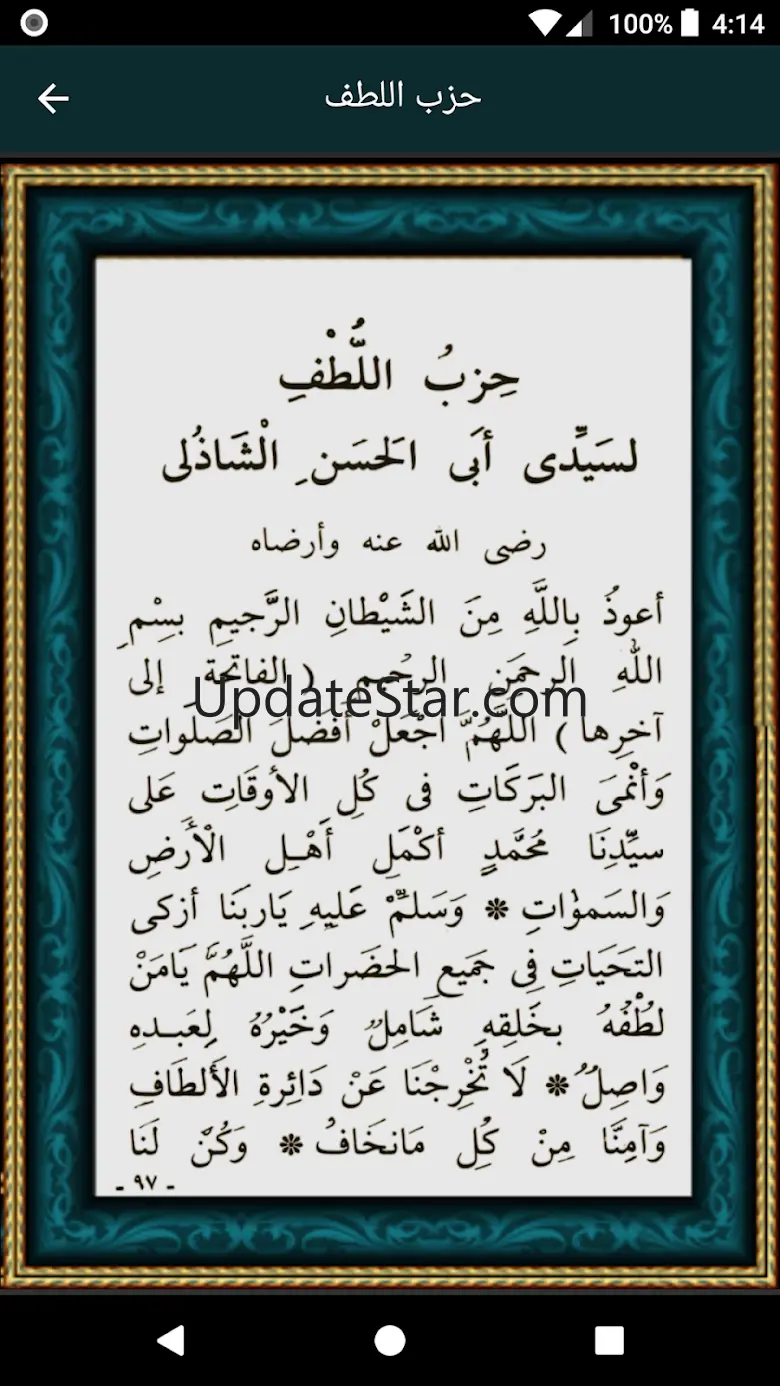 100% 4:14
حزب اللطف
حِزبُ اللُّطْفِ
لسَيِّدى أبَى الحَسَنِ الْشَاذُلى
رضى الله عنه وأرضاه
أعوذُ بِاللَّهِ مِنَ الشَيْطانِ الرَّجيمِ بسْمِ
اللهِ الرحمَنِ الرحيم ( الفاتحة إلى
UpdateStar.com
آخرِها ) اللَّهُمَّ اجْعَلْ أَفْضَلَ الصَلَواتِ
وَأنْمىَ البَرَكَاتِ فى كُلِ الأوقَاتِ عَلى
سيِّدِنَا مُحَمَّدٍ أكْمَلِ أَهْلِ الْأَرضِ
وَالسَموٰاتِ ❋ وَسَلمِّْ عَليهِ يَاربَنَا أزكى
التحَيَاتِ فِى جَميَعِ الحضَراتِ اللَّهُمَّ يَامَنْ
لطُفْهُ بخَلقِهِ شَامِلٌ وَخَيْرُهُ لِعَبدهِ
وَاصِلٌ ❋ لَا تُخْرِجْنَا عَنْ دَائِرةِ الأَلطَافِ
وَآمِنَّا مِنْ كُلِ مَانخَافُ ❋ وَكُنْ لَنَا
- ٩٧ -